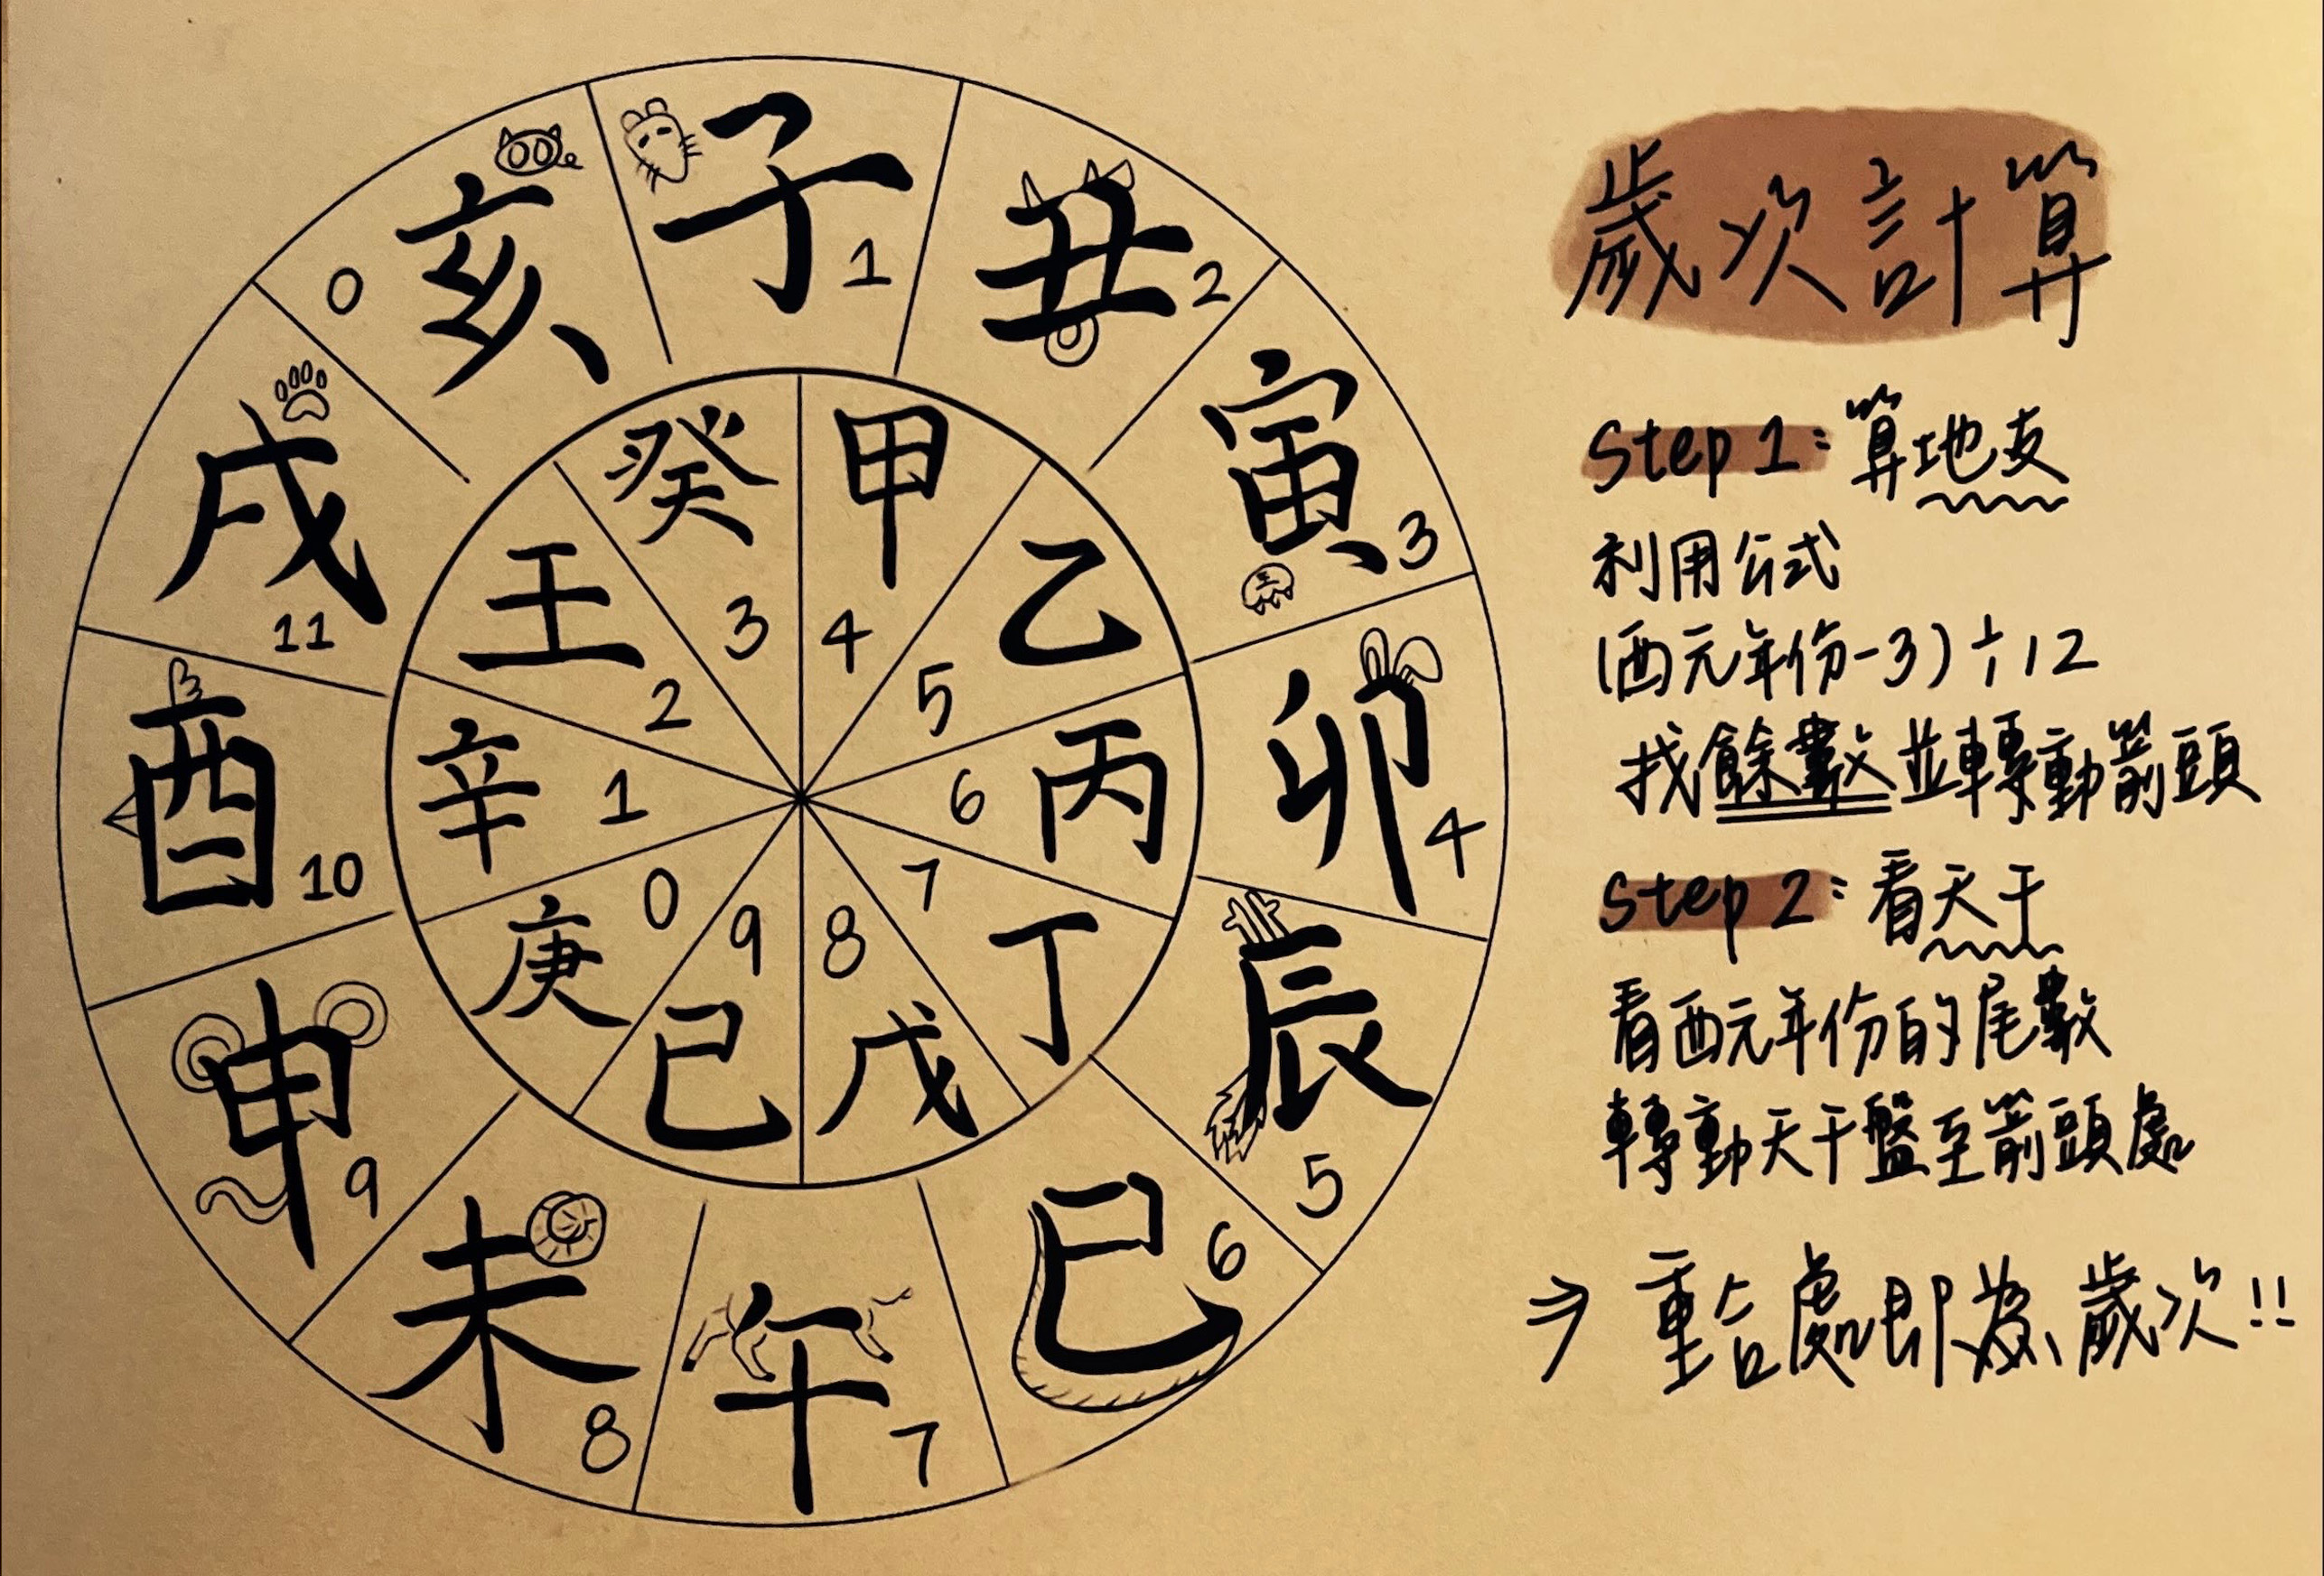 子 1
丑 2
寅 3
卯 4
辰 5
巳 6
午 7
未 8
申 9
酉 10
戌 11
亥 0
甲 4
乙 5
丙 6
丁 7
戊 8
己 9
庚 0
辛 1
王 2
癸 3
歲次計算
Step 1：算地支
利用公式
(西元年份-3)÷12
找餘數並轉動箭頭
Step 2：看天干
看西元年份的尾數
轉動天干盤至箭頭處
⇒ 重合處即為歲次!!